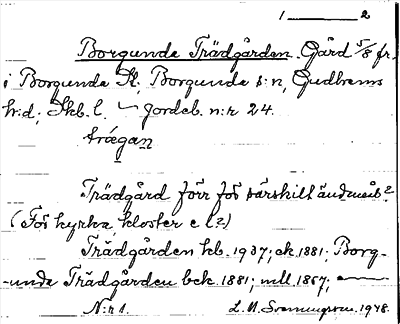 1 ——— 2
Borgunda Trädgården. Gård 5/8 fr.
i Borgunda K; Borgunda s:n, Gudhems
h:d; Skb. l. — Jordeb. n:r 24.
trǽgan
Trädgård förr för särskilt ändmål?
(För kyrka, kloster e l?)
Trädgården hb. 1937; ek. 1881; Borg-
-unda Trädgården bek. 1881; mll. 1867;
N:r 1. L. M. Svenungson. 1948.